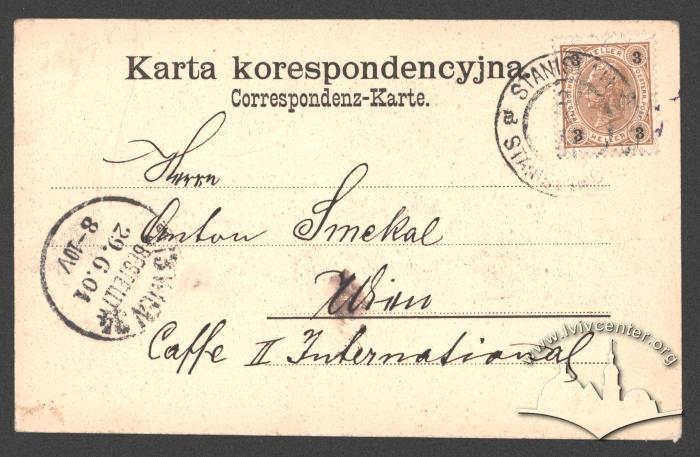 Karta korespondencyjna.
Correspondenz-Karte.
3 HELLER 3
3 HELLER 3
STANIS
STANIS
Herrn
Anton Smekal
Wien
Caffe II International
WIEN
BESTELLT
29.6.01
8-10V
www.lvivcenter.org